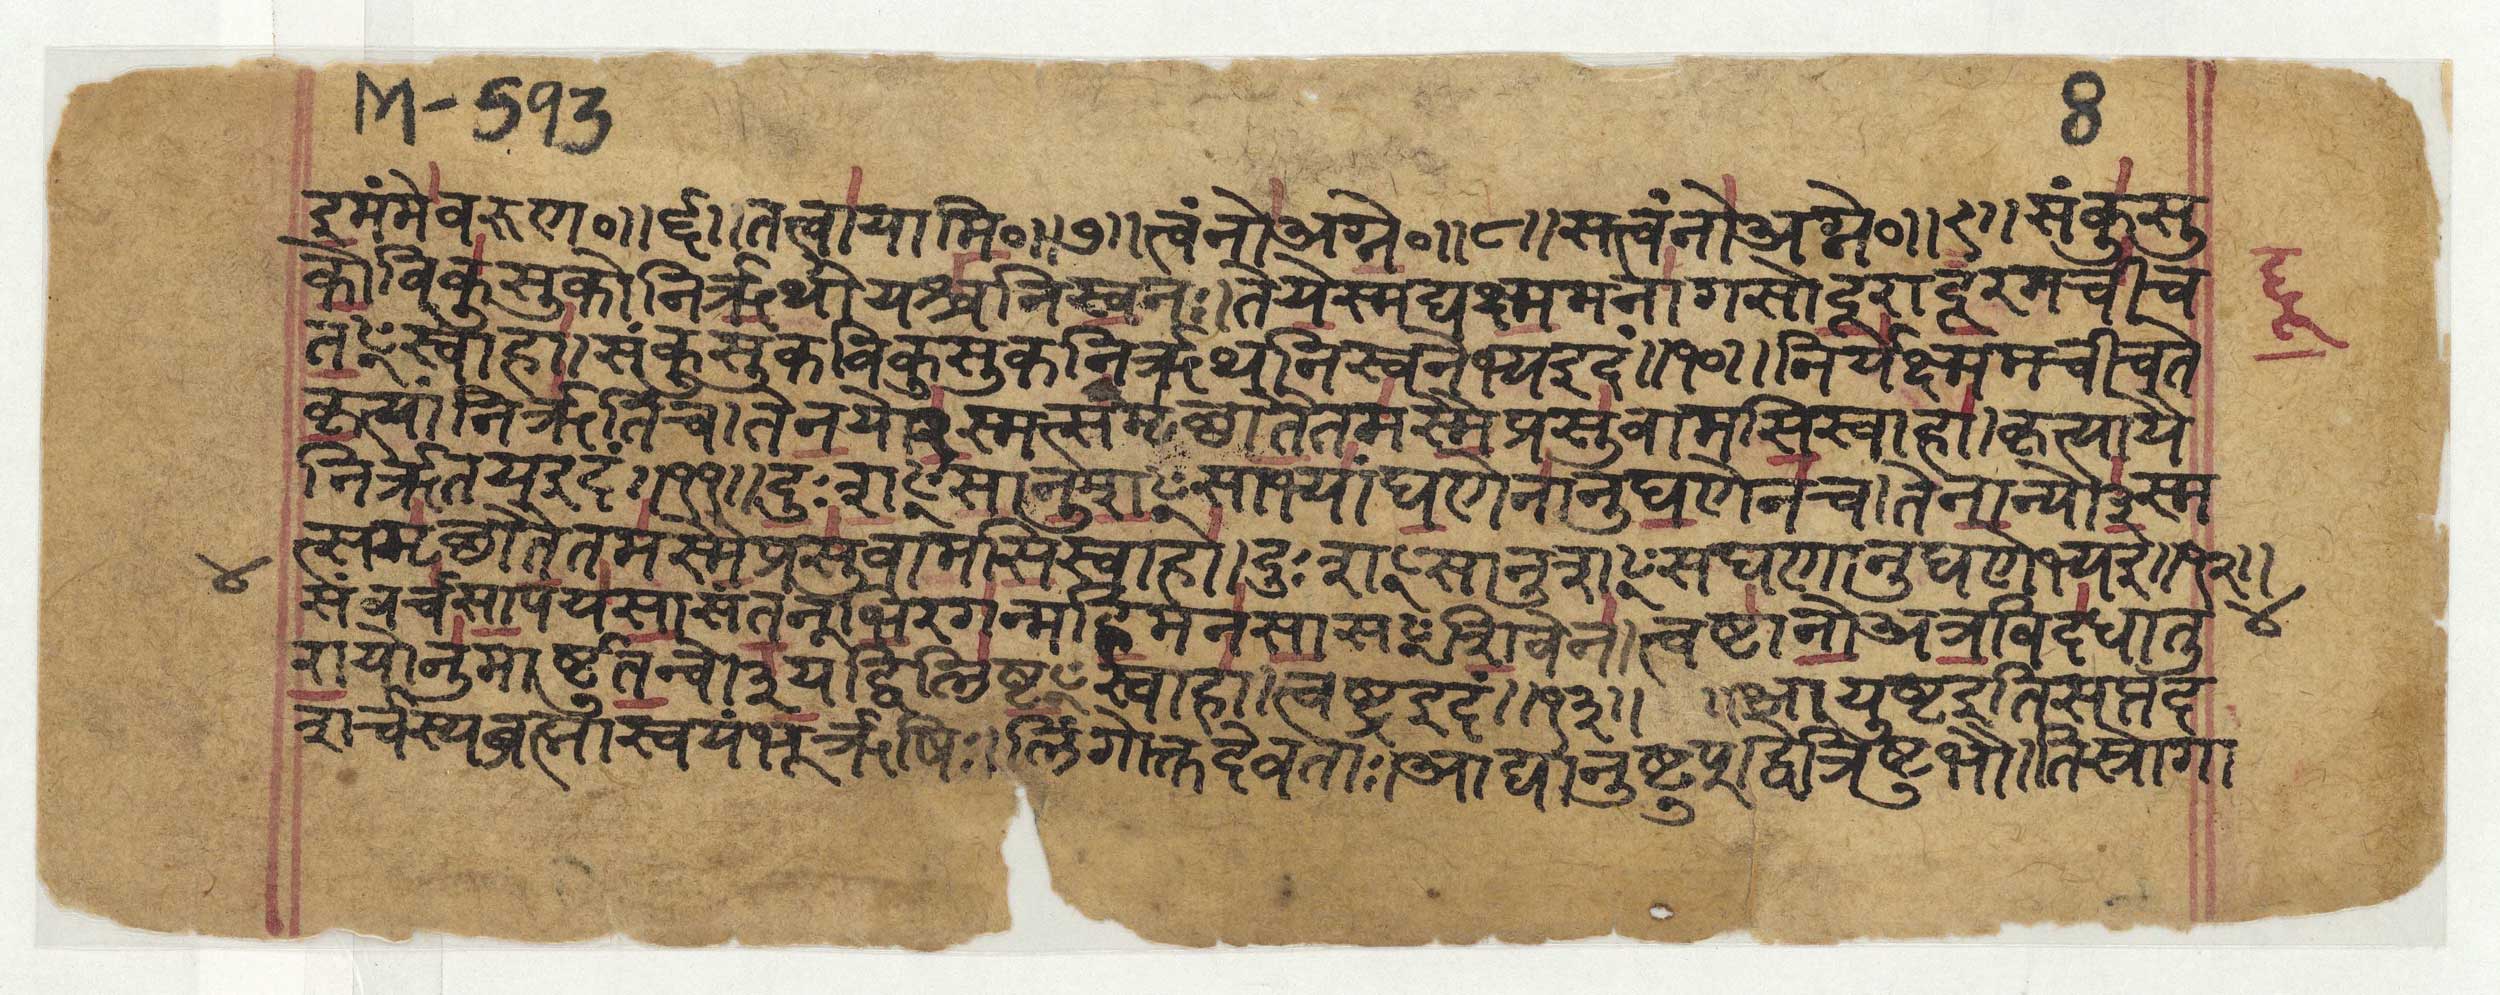 M-593
8
इमंमेवरुण०॥६॥तत्वायामि०॥७॥त्वंनोअग्ने०॥८॥सत्वंनोअग्ने०॥९॥संकुसु
कोविकुसुकोनिर्ऋथोयश्चनिस्वनः॥तेयेस्मद्यक्ष्ममनागसोदूराद्दूरमचीच
तꣳस्वाहा॥संकुसुकविकुसुकनिर्ऋथनिस्वनेभ्यइदं॥१०॥निर्यक्ष्ममचीचते
कृत्यांनिर्ऋतिंच।तेनयो३स्मत्समृच्छातैतमस्मैप्रसुवामसिस्वाहा।कृत्यायै
निर्ऋतयइदं॥११॥दुःशꣳसानुशꣳसाभ्यांघणेनानुघणेनच।तेनान्यो३स्म
त्समृच्छातैतमस्मैप्रसुवामसिस्वाहा।दुःशꣳसानुशꣳसघणानुघणेभ्यइ॥१२॥
४
संवर्चसापयसासंतनूभिरगन्महिमनसासꣳशिवेन।त्वष्टानोअत्रविदधातु
४
रायोनुमार्ष्टुतन्वो३यद्विलिष्टꣳस्वाहा।त्वष्ट्रइदं॥१३॥ ॥आयुष्टइतिसप्तद
शर्चस्यब्रह्मास्वयंभूर्ऋषिः॥लिंगोक्तदेवताः॥आद्यानुष्टुप्।द्वेत्रिष्टुभौ।तिस्रोगा